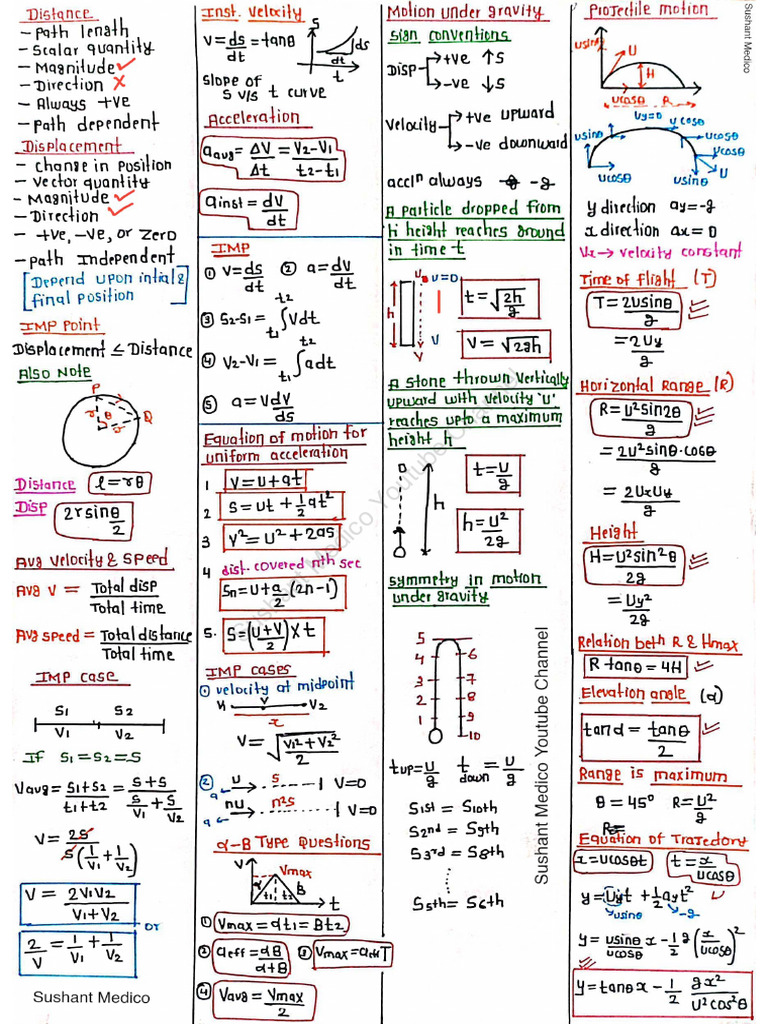 Distance
- Path length
- Scalar quantity
- Magnitude ✓
- Direction ✗
- Always +ve
- Path dependent
Displacement
- Change in position
- Vector quantity
- Magnitude ✓
- Direction ✓
- +ve, -ve, or zero
- Path Independent
[Depend upon intial & final position]
IMP Point
Displacement ≤ Distance
Also Note
P
Q
r θ r
Distance l = rθ
Disp 2r sin θ/2
Avg velocity & speed
Avg V = Total disp / Total time
Avg speed = Total distance / Total time
IMP case
S1 S2
V1 V2
If S1 = S2 = S
Vavg = (S1+S2)/(t1+t2) = (S+S)/(S/V1 + S/V2)
V = 2S / S(1/V1 + 1/V2)
V = 2V1V2 / (V1+V2)
or
2/V = 1/V1 + 1/V2
Sushant Medico
Inst. velocity
V = ds/dt = tanθ
S
ds
dt
t
slope of
S v/s t curve
Acceleration
a avg = ΔV/Δt = (V2-V1)/(t2-t1)
a inst = dV/dt
IMP
① V = ds/dt ② a = dV/dt
③ S2-S1 = ∫ t1 t2 Vdt
④ V2-V1 = ∫ t1 t2 adt
⑤ a = V dV/ds
Equation of motion for
uniform acceleration
1 V = U + at
2 S = Ut + 1/2 at²
3 V² = U² + 2as
4 dist. covered nth sec
Sn = U + a/2 (2n-1)
5. S = ((U+V)/2) × t
IMP cases
① velocity at midpoint
V V2
x
V = √((V1²+V2²)/2)
② U S V=0
a
nU n²S V=0
a
α-B Type Questions
V
Vmax
α B
t1 t2
t
① Vmax = αt1 = Bt2
② aeff = αB/(α+B) ③ Vmax = aeff T
④ Vavg = Vmax/2
Motion under gravity
sign conventions
Disp +ve ↑S
-ve ↓S
Velocity +ve upward
-ve downward
accln always -g
A particle dropped from
H height reaches ground
in time t
U=0
h
V
V
t = √(2h/g)
V = √(2gh)
A stone thrown vertically
upward with velocity 'U'
reaches upto a maximum
height h
0
h
t = U/g
h = U²/2g
symmetry in motion
under gravity
5
4 6
3 7
2 8
1 9
10
t up = U/g t down = U/g
S1st = S10th
S2nd = S9th
S3rd = S8th
⋮
S5th = S6th
Sushant Medico Youtube Channel
Sushant Medico Youtube Channel
Projectile motion
Sushant Medico
usinθ
U
H
ucosθ R
Uy=0
ucosθ
usinθ
ucosθ
ucosθ
usinθ
U
ucosθ
y direction ay=-g
x direction ax=0
Vx → velocity constant
Time of flight (T)
T = 2Usinθ/g
= 2Uy/g
Horizontal Range (R)
R = U²sin2θ/g
= 2U²sinθ·cosθ/g
= 2UxUy/g
Height
H = U²sin²θ/2g
= Uy²/2g
Relation beth R & Hmax
R tanθ = 4H
Elevation angle (α)
tanα = tanθ/2
Range is maximum
θ = 45° R = U²/g
Equation of Trajectory
x = Ucosθt t = x/Ucosθ
y = Uyt + 1/2 ayt²
usinθ -g
y = usinθ/ucosθ x - 1/2 g (x/ucosθ)²
y = tanθx - 1/2 gx²/U²cos²θ